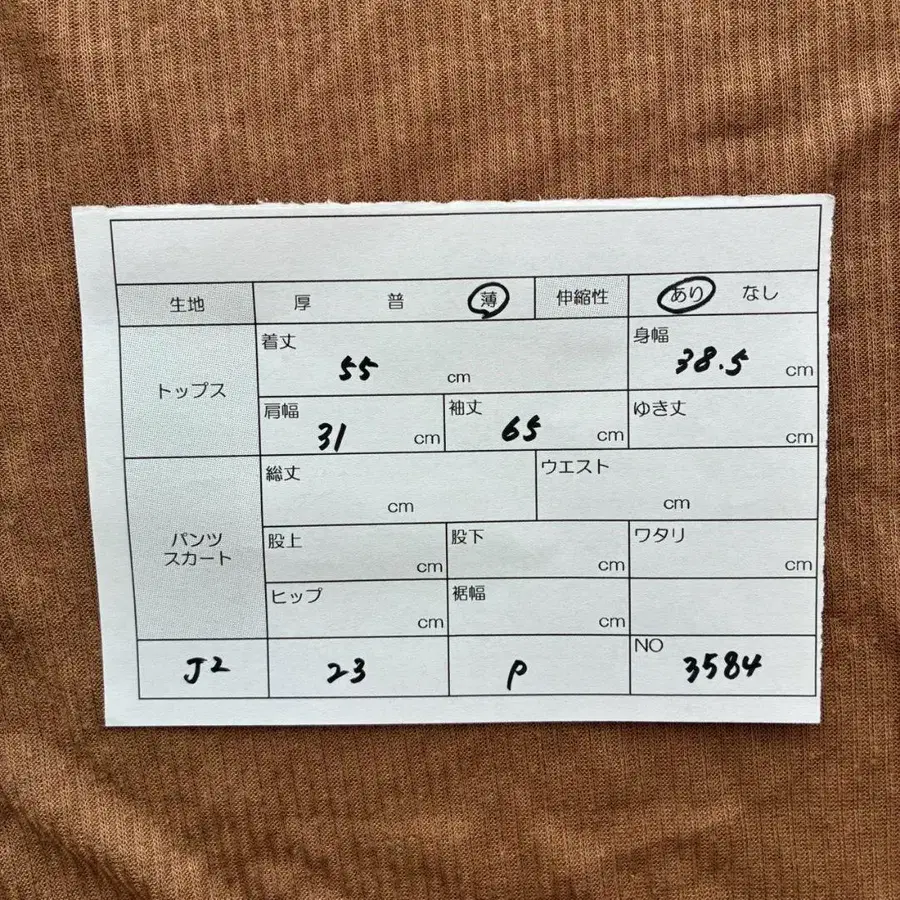 生地 厚 普 薄 伸縮性 あり なし
着丈 55 cm 身幅 38.5 cm
トップス
肩幅 31 cm 袖丈 65 cm ゆき丈 cm
総丈 cm ウエスト cm
パンツ
スカート
股上 cm 股下 cm ワタリ cm
ヒップ cm 裾幅 cm
J2 23 P NO 3584